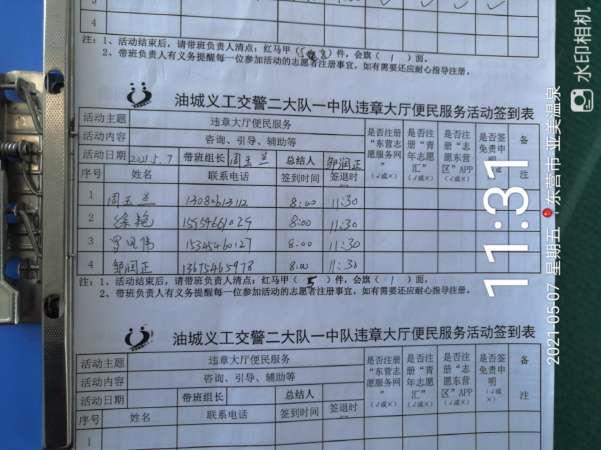 3
注：1、活动结束后，请带班负责人清点：红马甲（ ）件，会旗（ 1 ）面。
2、带班负责人有义务提醒每一位参加活动的志愿者注册事宜，如有需要还应耐心指导注册。
油城义工交警二大队一中队违章大厅便民服务活动签到表
活动主题 违章大厅便民服务 是否注册“东营志愿服务网”（√或×） 是否注册“青年志愿汇”（√或×） 是否注册“志愿东营区”APP（√或×） 是否签免责申明（√或×） 备注
活动内容 咨询、引导、辅助等
活动日期 2021.5.7 带班组长 周玉兰 总结人 邹润正
序号 姓名 联系电话 签到时间 签退时间
1 周玉兰 8:00 11:30
2 徐艳 15554661029 8:00 11:30
3 15345460127 8:00 11:30
4 邹润正 13675465978 8:00 11:30
注：1、活动结束后，请带班负责人清点：红马甲（ 5 ）件，会旗（ 1 ）面。
2、带班负责人有义务提醒每一位参加活动的志愿者注册事宜，如有需要还应耐心指导注册。
油城义工交警二大队一中队违章大厅便民服务活动签到表
活动主题 违章大厅便民服务 是否注册“东营志愿服务网”（√或×） 是否注册“青年志愿汇”（√或×） 是否注册“志愿东营区”APP（√或×） 是否签免责申明（√或×） 备注
活动内容 咨询、引导、辅助等
活动日期 带班组长 总结人
序号 姓名 联系电话 签到时间 签退时间
1
水印相机
11:31
2021.05.07 星期五 东营市·亚美温泉